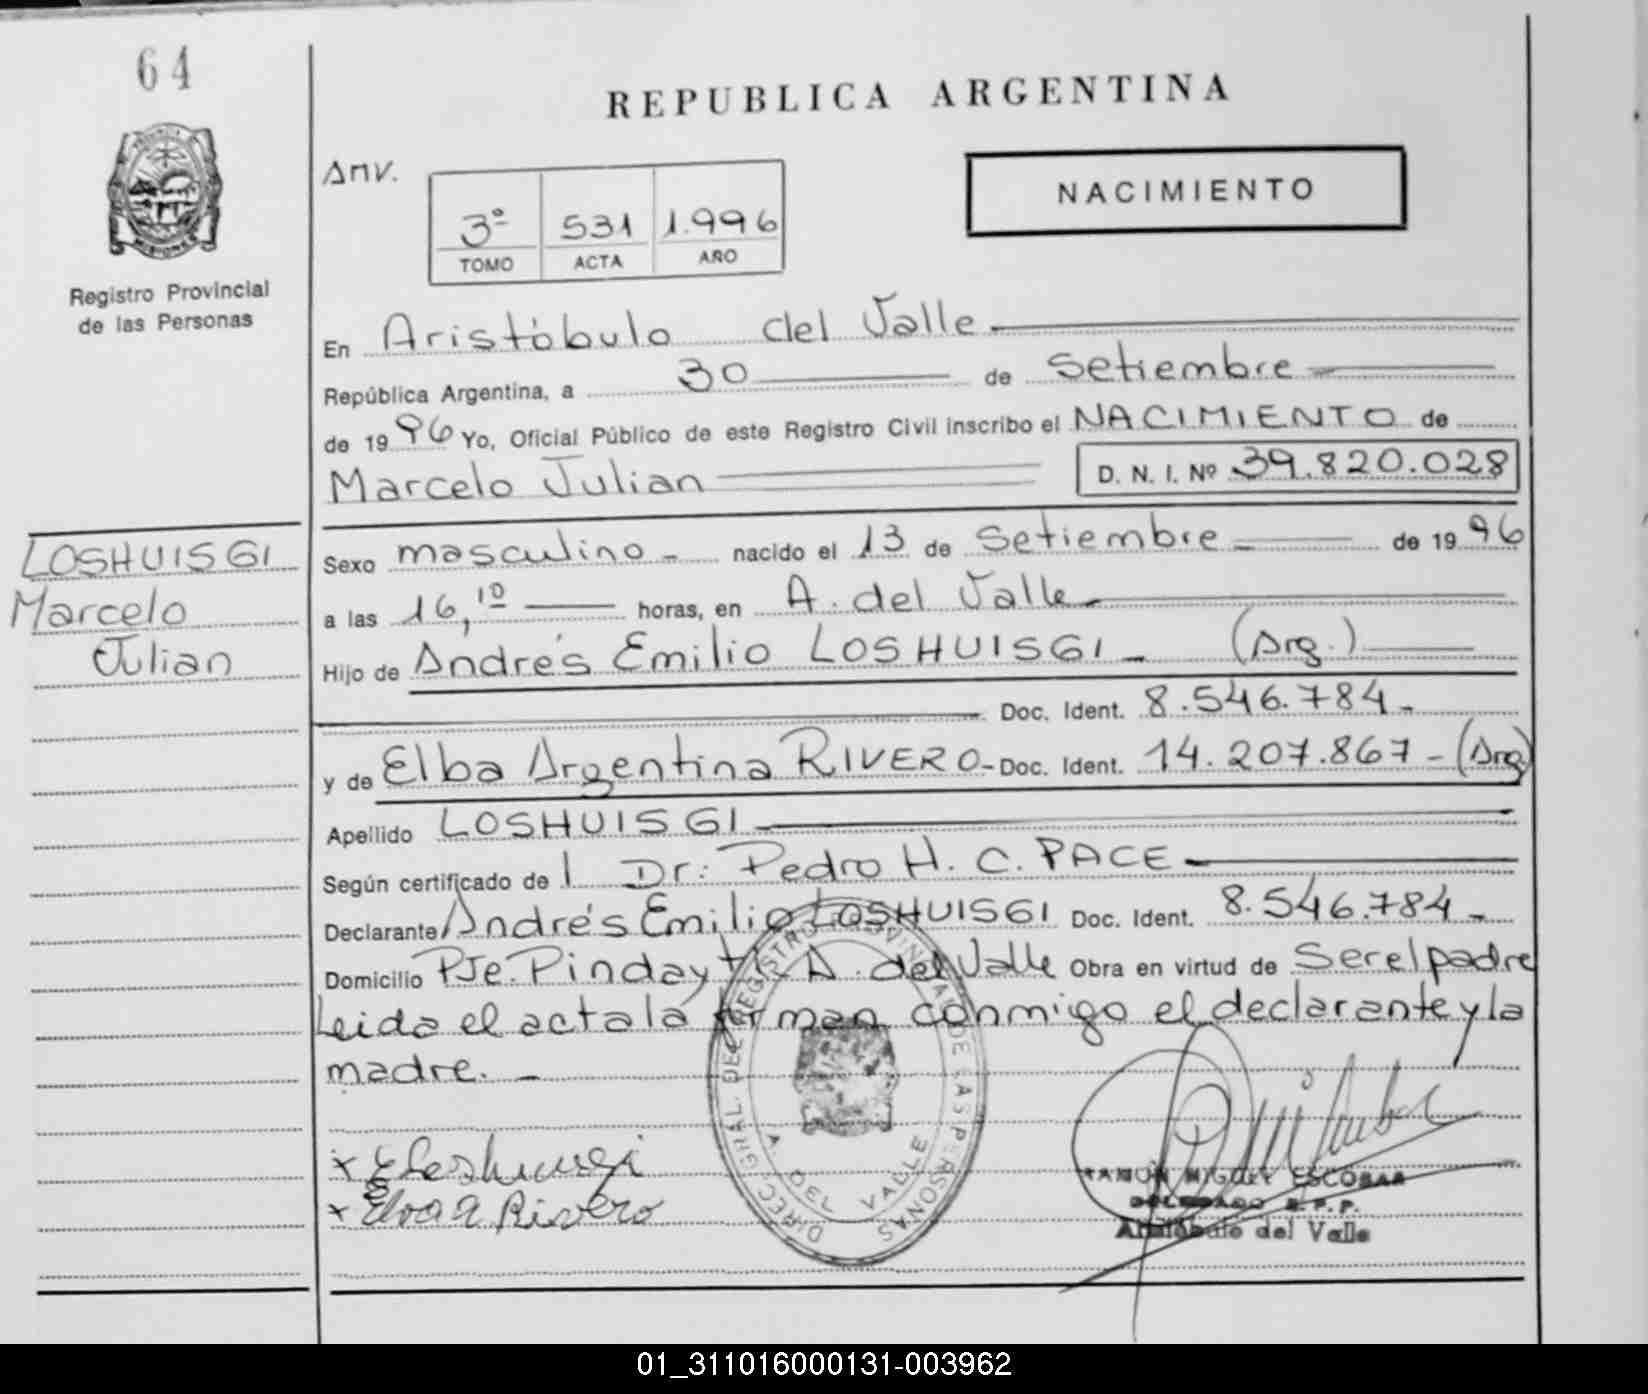 64
REPUBLICA ARGENTINA
NACIMIENTO
3º 531 1.996
TOMO ACTA AÑO
MISIONES
Registro Provincial
de las Personas
En Aristóbulo del Valle
República Argentina, a 30 de Setiembre
de 1996 Yo, Oficial Público de este Registro Civil inscribo el NACIMIENTO de
Marcelo Julian D. N. I. Nº 39.820.028
LOSHUISGI
Marcelo
Julian
Sexo masculino - nacido el 13 de Setiembre - de 1996
a las 16,10 horas, en A. del Valle
Hijo de Andrés Emilio LOSHUISGI - (Arg.)
Doc. Ident. 8.546.784 -
y de Elba Argentina RIVERO - Doc. Ident. 14.207.867 - (Arg)
Apellido LOSHUISGI
Según certificado de l Dr: Pedro H. C. PACE
Declarante Andrés Emilio LOSHUISGI Doc. Ident. 8.546.784 -
Domicilio Pje. Pindayti A. del Valle Obra en virtud de Ser el padre
Leida el acta la firman conmigo el declarante y la
madre. -
x
x Elva A Rivero
DIREC. GRAL. DEL REGISTRO PROVINCIAL DE LAS PERSONAS
A. DEL VALLE
RAMON MIGUEL ESCOBAR
DELEGADO R.P.P.
Aristóbulo del Valle
01_311016000131-003962